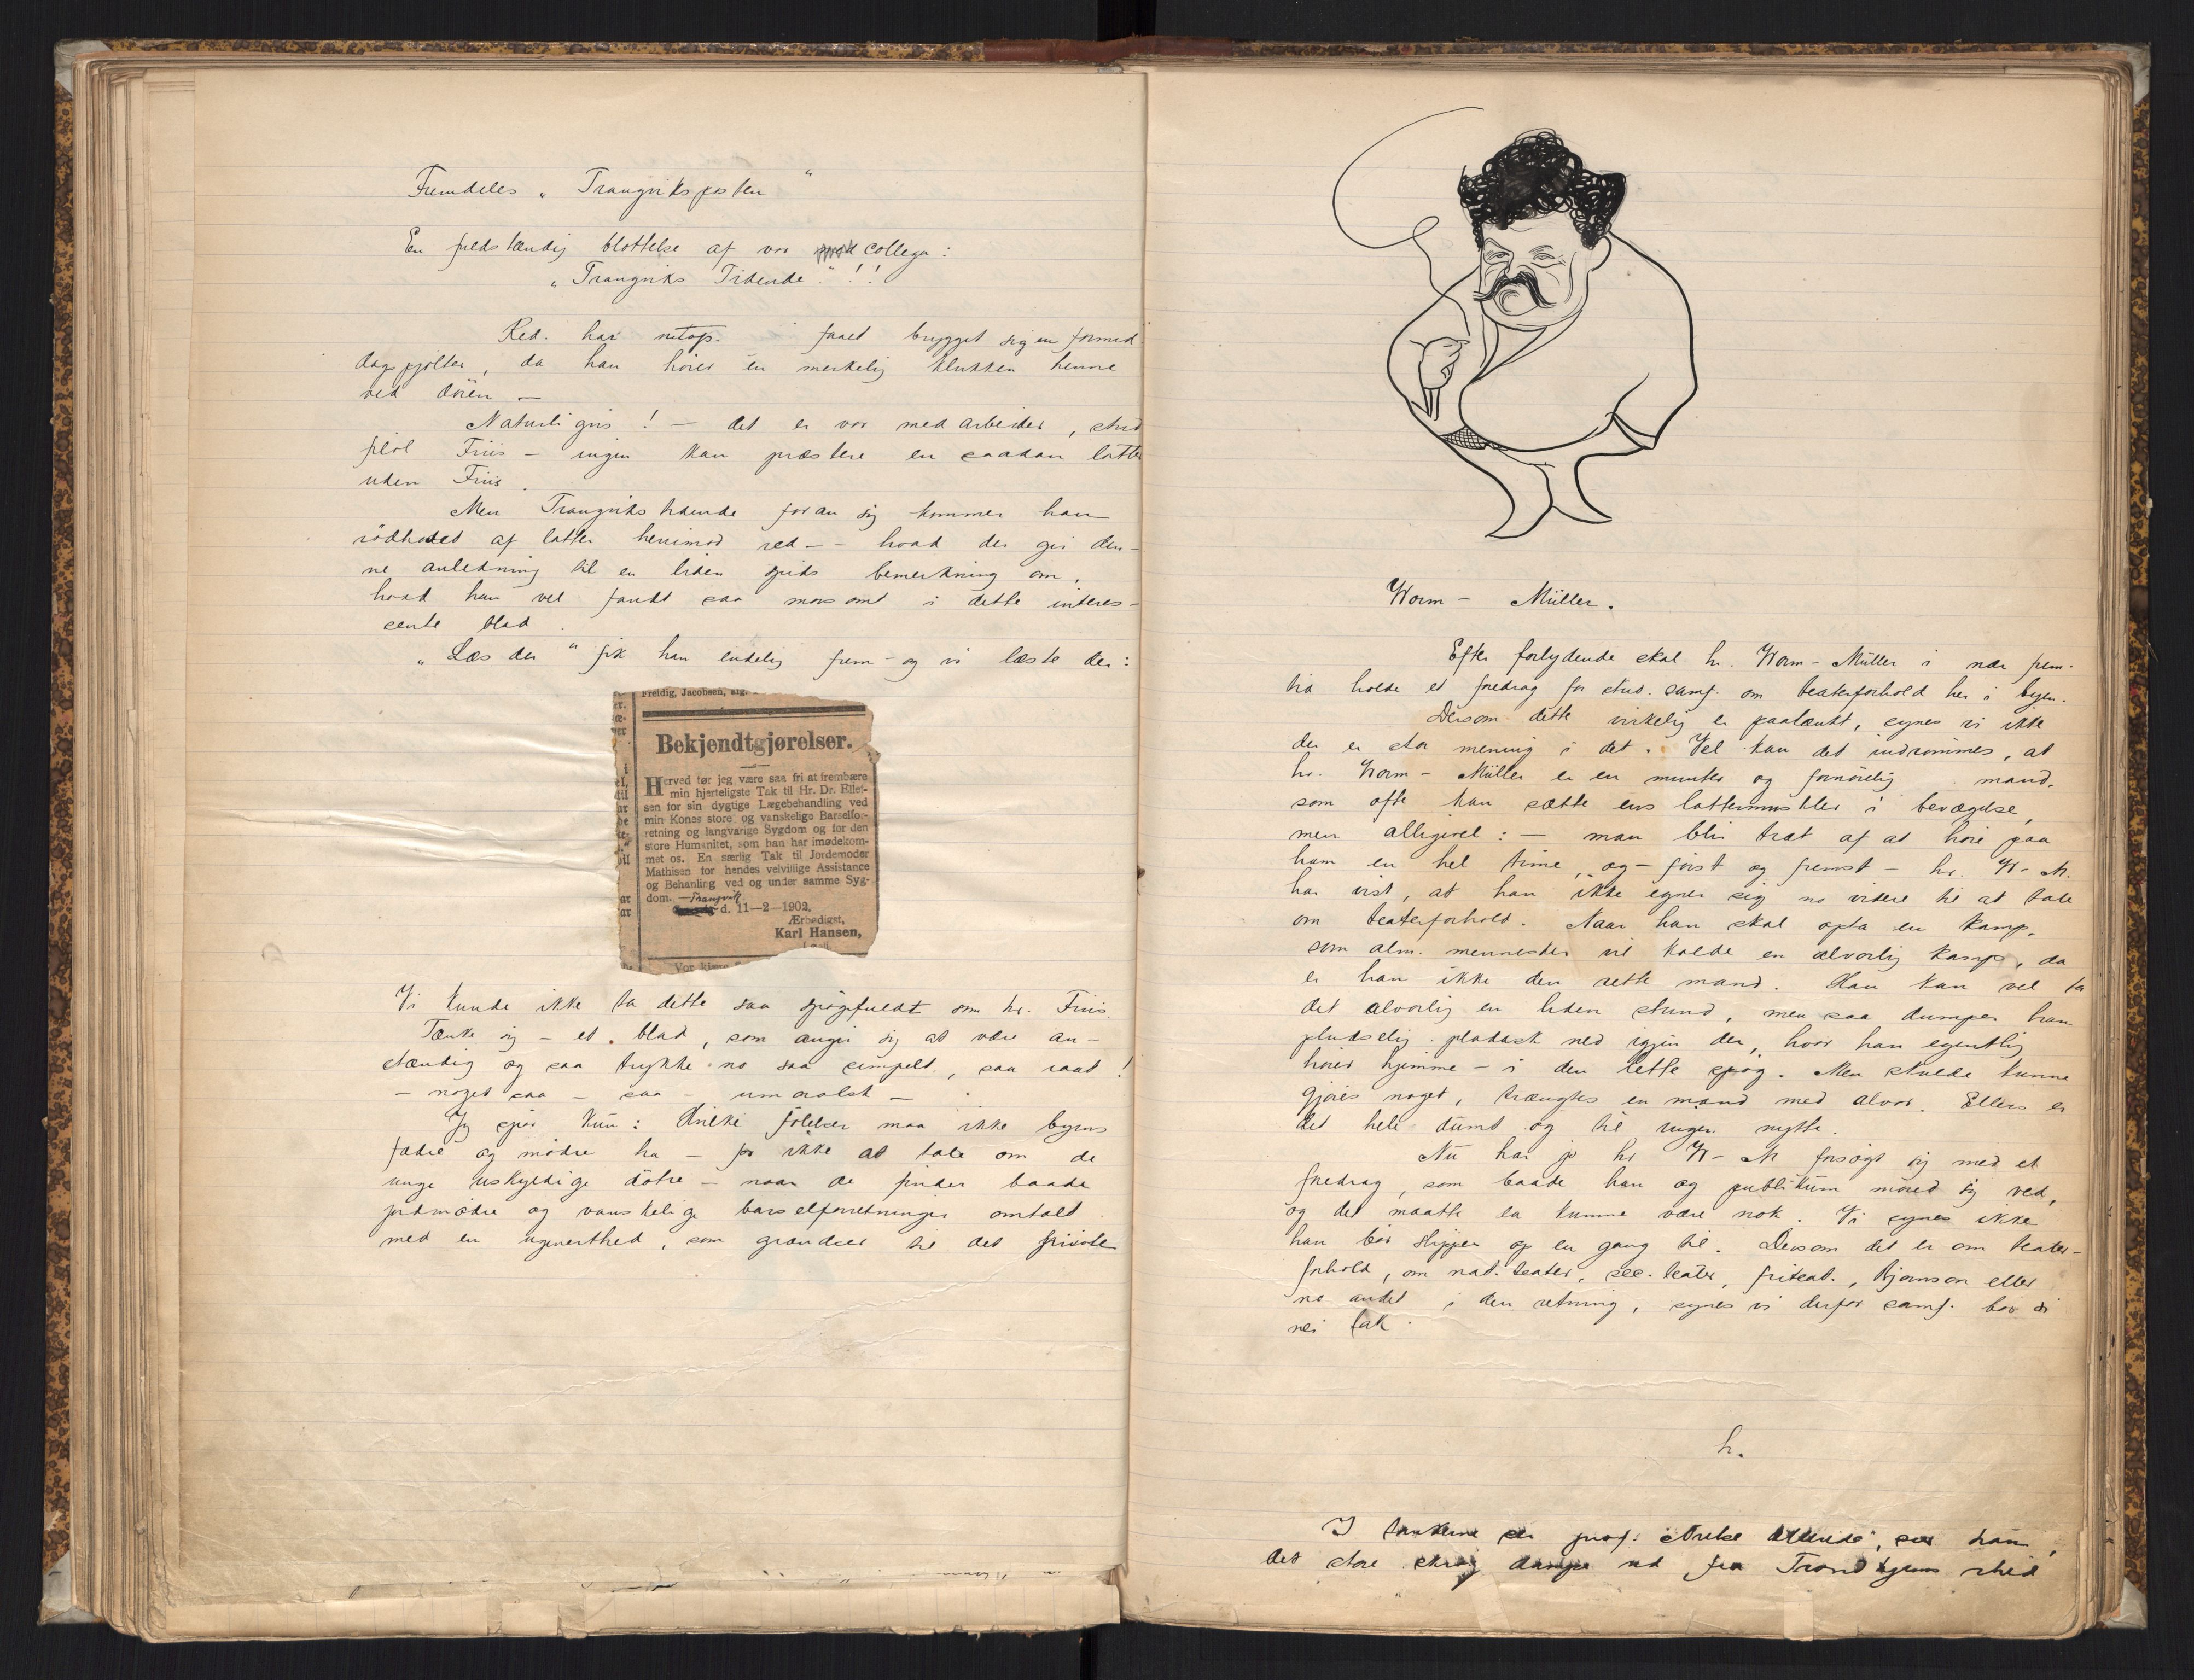 Fremdeles „Trangviksposten“
En fuldstændig blottelse af vor collega:
„Trangviks Tidende“!!
Red. har netop faaet brygget sig en formid
dagspjolter, da han hører en merkelig klukken henne
ved døren —
Naturligvis! — det er vor medarbeider, stud
filol Friis — ingen kan præstere en saadan latter
uden Friis.
Men Trangviks tidende foran sig kommer han
rødhodet af latter henimod red — hvad der gir den-
ne anledning til en liden spids bemerkning om,
hvad han vel fandt saa morsomt i dette interes-
sente blad.
„Læs der“ fik han endelig frem — og vi læste der:
Freidig, Jacobsen, arg.
Bekjendtgjørelser.
Herved tør jeg være saa fri at frembære
min hjerteligste Tak til Hr. Dr. Ellef-
sen for sin dygtige Lægebehandling ved
min Kones store og vanskelige Barselfor-
retning og langvarige Sygdom og for den
store Humanitet, som han har imødekom-
met os. En særlig Tak til Jordemoder
Mathisen for hendes velvillige Assistance
og Behanling ved og under samme Syg-
dom. — Trangvik
d. 11—2—1902,
Ærbødigst,
Karl Hansen,
Vor kjære
Vi kunde ikke ta dette saa spøgefuldt som hr. Friis.
Tænke sig — et blad, som angir sig at være an-
stændig og saa trykke no saa simpelt, saa raat!
— noget saa — saa — umoralsk —
Jeg spør kun: Hvilke følelser maa ikke byens
fædre og mødre ha — for ikke at tale om de
unge uskyldige døtre — naar de finder baade
jordmødre og vanskelige barselforretninger omtalt
med en ugenerthed, som grændser til det frivole
Worm - Müller.
Efter forlydende skal hr. Worm - Müller i nær frem-
tid holde et foredrag for stud. samf. om teaterforhold her i byen.
Dersom dette virkelig er paatænkt, synes vi ikke
der er stor mening i det. Vel kan det indrømmes, at
hr. Worm - Müller er en munter og fornøielig mand,
som ofte kan sætte ens lattermuskler i bevægelse,
men alligevel: — man blir træt af at høre paa
ham en hel time, og — først og fremst — hr. W - M.
har vist, at han ikke egner sig no videre til at tale
om teaterforhold. Naar han skal opta en kamp,
som alm. mennesker vil kalde en alvorlig kamp, da
er han ikke den rette mand. Han kan vel ta
det alvorlig en liden stund, men saa dumper han
pludselig pladask ned igjen der, hvor han egentlig
hører hjemme — i den lette spøg. Men skulde kunne
gjøres noget, trængtes en mand med alvor. Ellers er
det hele dumt og til ingen nytte.
Nu har jo hr W - M forsøgt sig med et
foredrag, som baade han og publikum mored sig ved,
og det maatte da kunne være nok. Vi synes ikke
han bør slippes op en gang til. Dersom det er om teater-
forhold, om nat. teater, sec. teater, friteat., Bjørnson eller
no andet i den retning, synes vi derfor samf. bør si
nei tak.
h.
I tankerne prof. han,
det store skrog dampe ud fra Trondhjems rhed